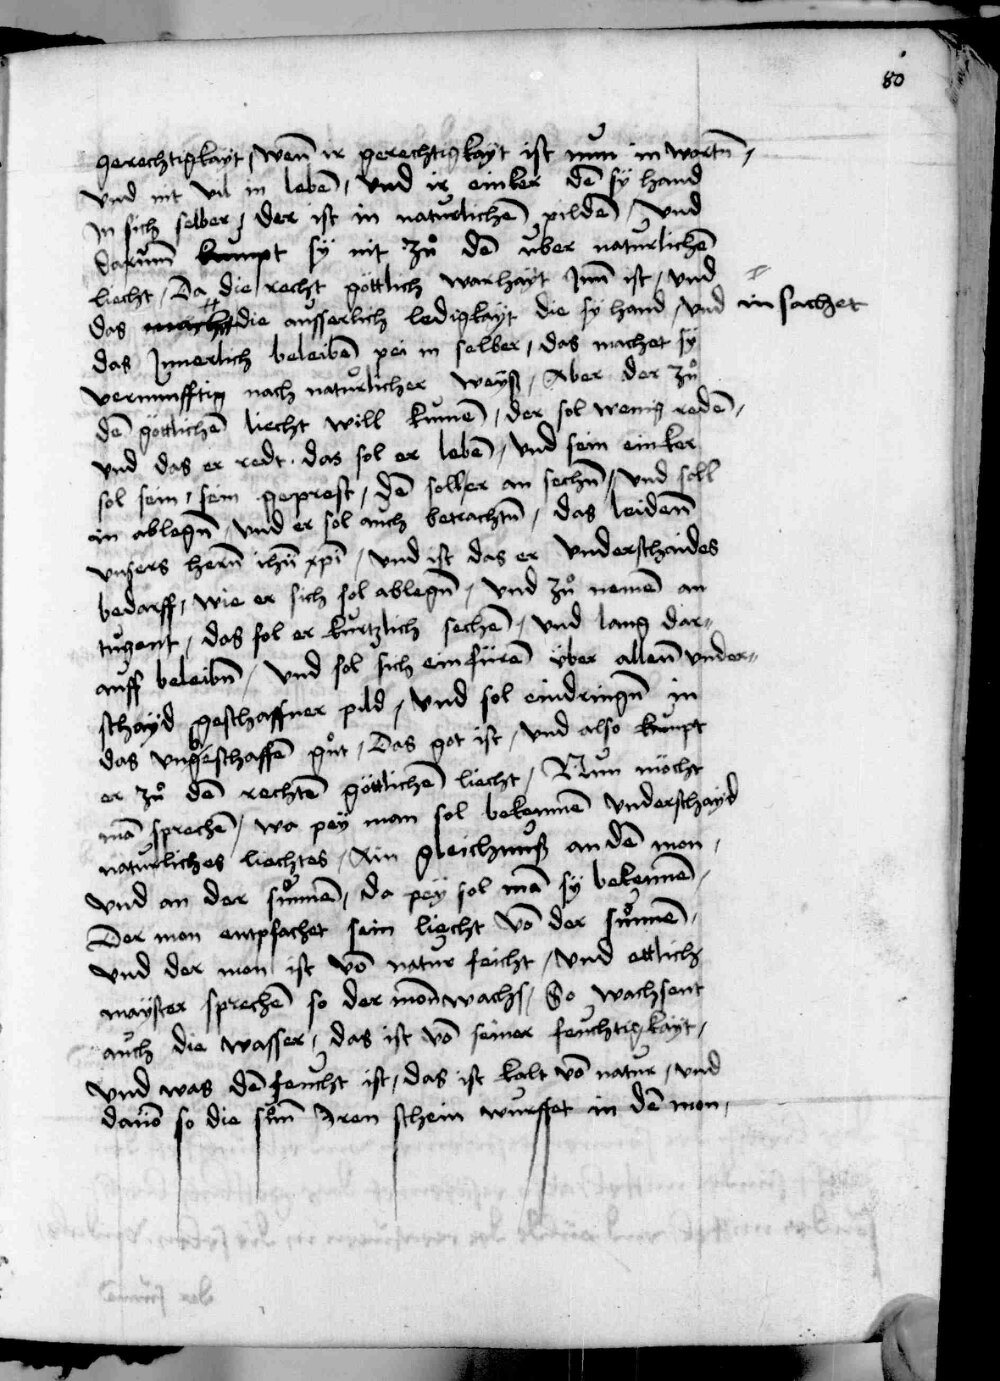 80
gerechtigkayt / wen̄ ir gerechtigkayt ist nun in wortn̄ /
vnd nit vil in lebē / vnd ir einker dē sy hand
Jn sich selber / der ist in naturlichē pildē / vnd
darum̄ kumpt sy nit zů dē vber naturlichē
liecht / Da die recht göttlich warhayt Jnn̄ ist / vnd
das die ausserlich ledigkayt die sy hand / vnd in sachet
das Jnnerlich beleibē pei in selber / das machet sy
vernunfftig nach naturlicher weyß / Aber der zů
dē göttlichē liecht will kumē / der sol wenig redē /
vnd das er redt . das sol er lebē / vnd sein einker
sol sein / sein geprest / dē soll er an sechn̄ / vnd soll
in ablegn̄ / vnd er sol auch betrachtn̄ / das leidenn̄
vnsers hern̄ ihū xpī / vnd ist das er vnderschaides
bedarff / wie er sich sol ablegn̄ / vnd zů nemē an
tugent / das sol er kurtzlich sechē / vnd lang dar=
auff beleibn̄ / vnd sol sich einfürē über allenn̄ vnder=
schayd geschaffner pild / vnd sol eindringn̄ in
das vngeschaffē gůt / Das got ist / vnd also kumpt
er zů dē rechtē göttlichē liecht / Nun möcht
mā sprechē / wa pey man sol bekennē vnderschayd
naturliches liechtes / Ain gleichnuß an dē mon /
vnd an der sůnnē / da pey sol mā sy bekennē /
Der mon entpfachet sein liecht vō der sůnnē /
vnd der mon ist vō natur feicht / vnd ettlich
mayster sprechē so der mon wachs / So wachsent
auch die wasser / das ist vō seiner feuchtigkayt /
vnd was dē feucht ist / das ist kalt vō natur / vnd
dauō so die sůn̄ Jren schein wurffet in dē mon /